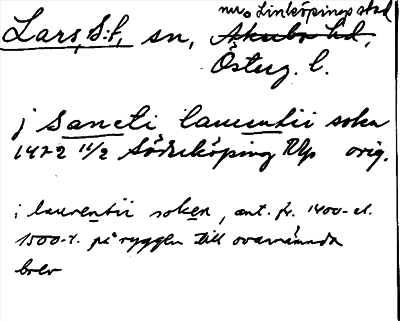 nu Linköpings stad
Lars, S:t, sn, Åkerbo hd,
Österg. l.
j Sancti laurentii sokn
1472 11/2 Söderköping Up orig.
i laurentii soken, ant. fr. 1400- el.
1500-t. på ryggen till ovannämnda
brev